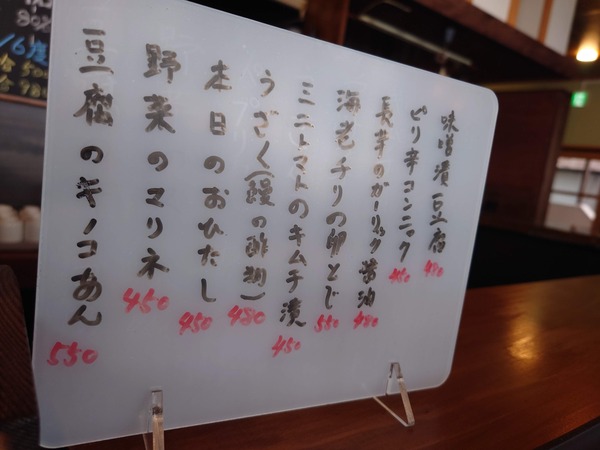 味噌漬豆腐 480
ピリ辛コンニャク 450
長芋のガーリック醤油 480
海老チリの卵とじ 550
ミニトマトのキムチ漬 450
うざく(鰻の酢物) 480
本日のおひたし 450
野菜のマリネ 450
豆腐のキノコあん 550